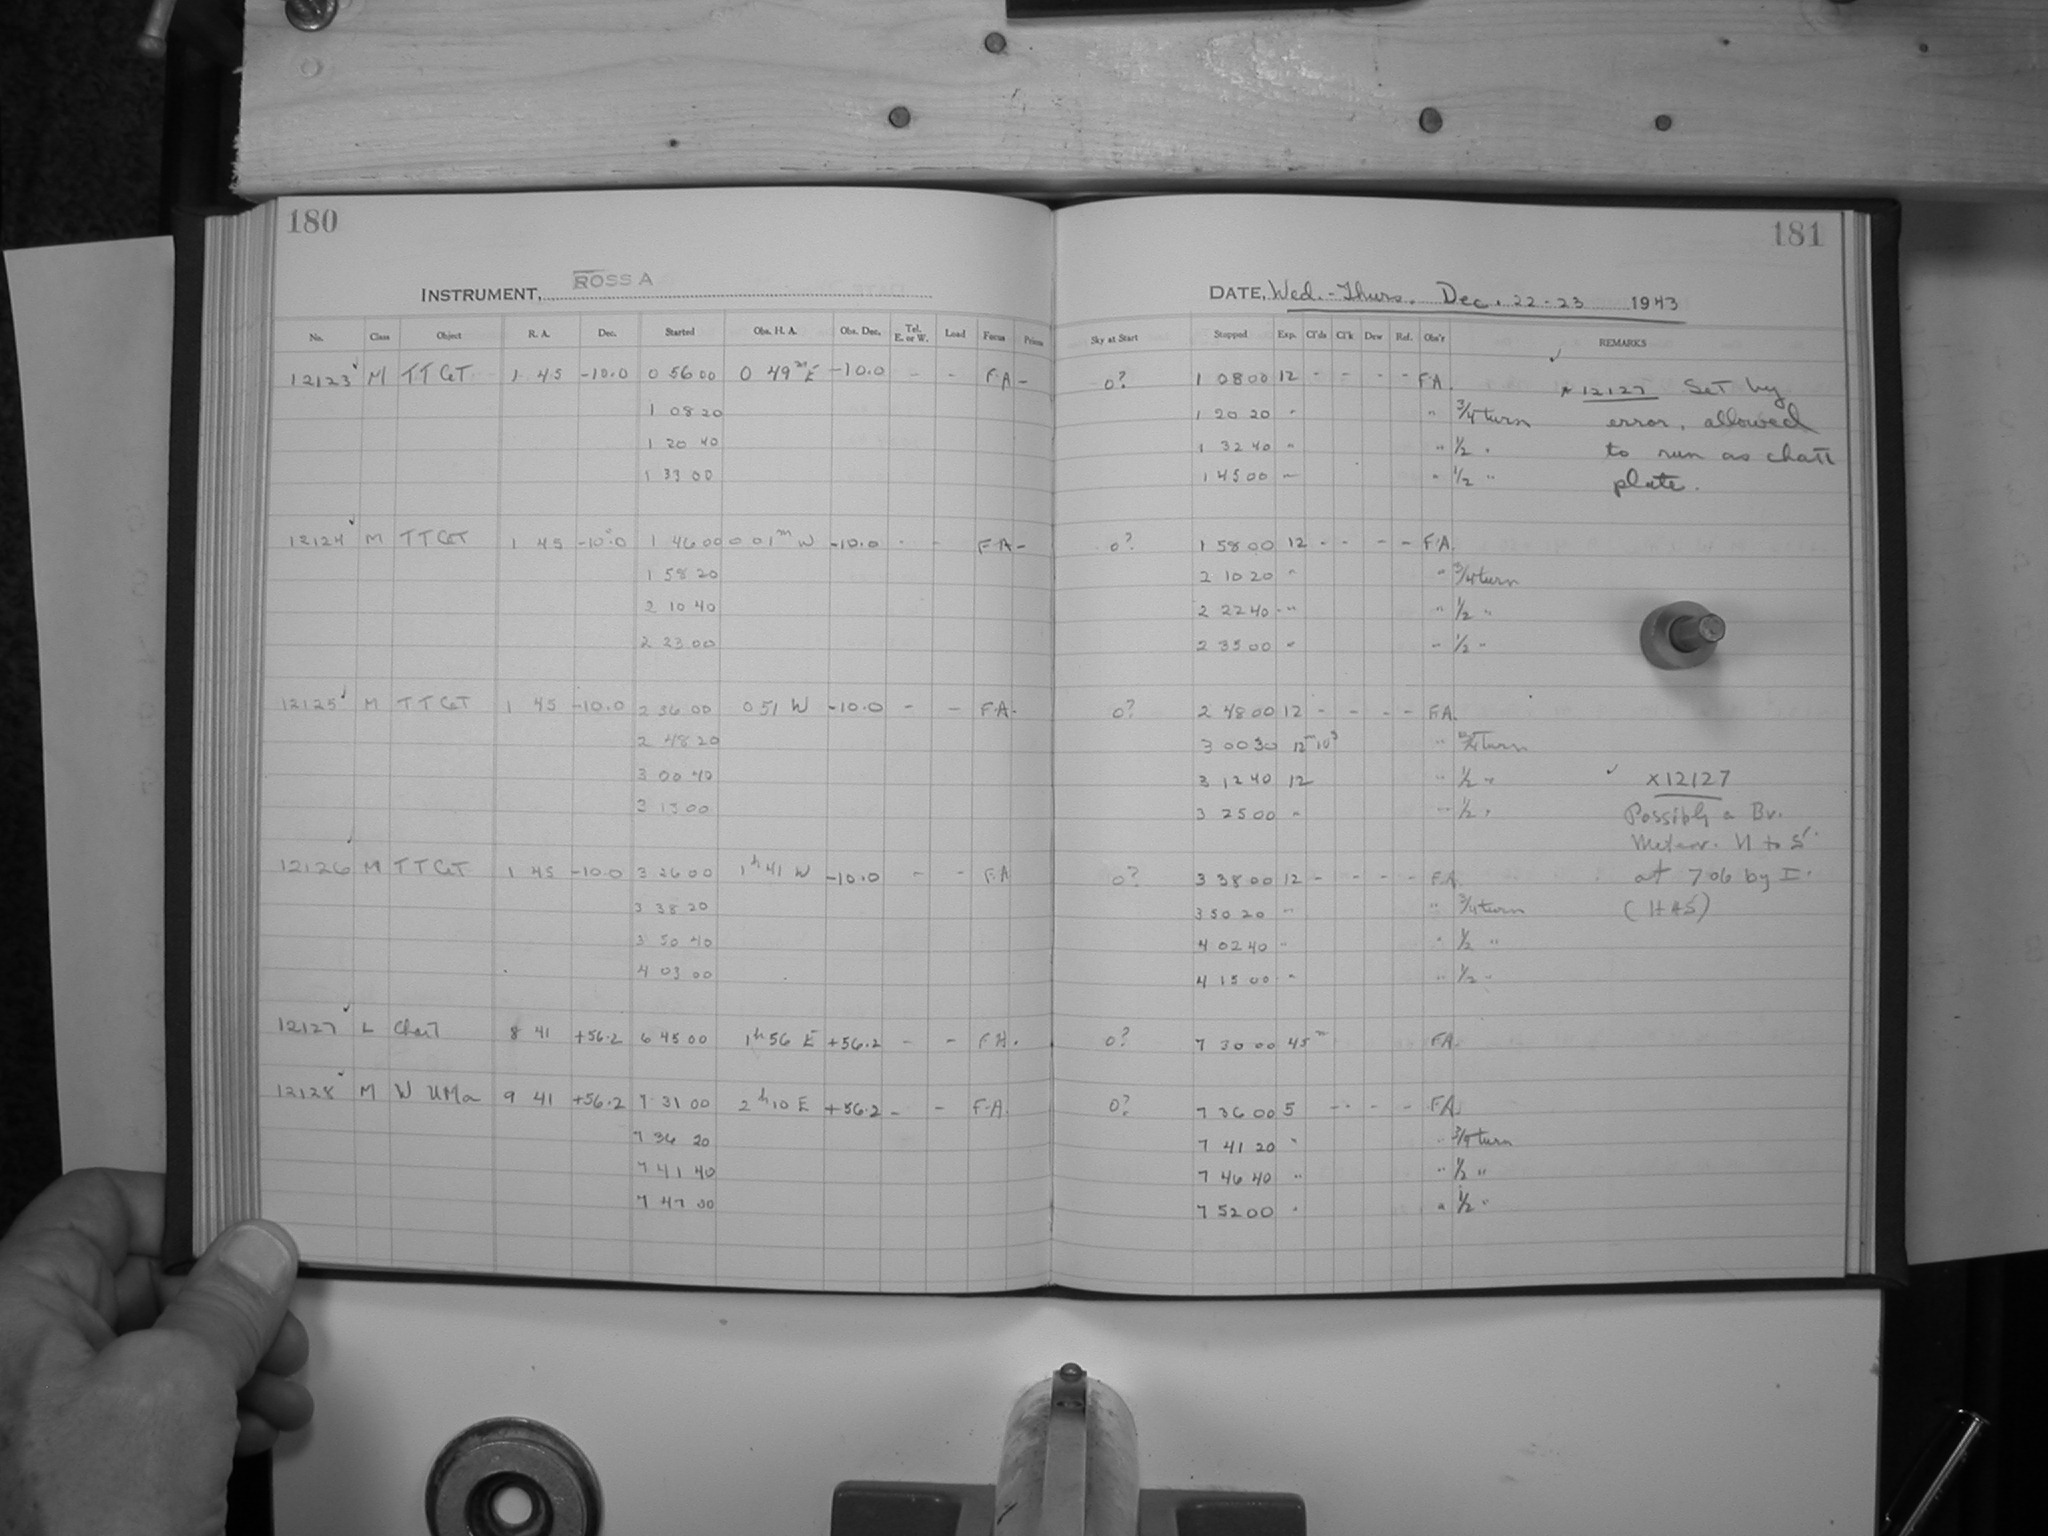 180
181
INSTRUMENT, ROSS A
DATE, Wed.-Thurs. Dec. 22-23 1943
No. Class Object R. A. Dec. Started Obs. H. A. Obs. Dec. Tel. E. or W. Load Focus Prism Sky at Start Stopped Exp. Cl'ds Cl'k Dew Ref. Obs'r REMARKS
12123 ✓ M TT CET 1 45 -10.0 0 56 00 0 49m E -10.0 - - F.A - 0? 1 08 00 12 - - - - F.A.
1 08 20 1 20 20 " " 3/4 turn
1 20 40 1 32 40 " " 1/2 "
1 33 00 1 45 00 " " 1/2 "
✓
* 12127 Set by
error, allowed
to run as chart
plate.
12124 ✓ M TT CET 1 45 -10.0 1 46 00 0 01m W -10.0 - - F.A - 0? 1 58 00 12 - - - - F.A.
1 58 20 2 10 20 " " 3/4 turn
2 10 40 2 22 40 " " 1/2 "
2 23 00 2 35 00 " " 1/2 "
12125 ✓ M TT CET 1 45 -10.0 2 36 00 0 51 W -10.0 - - F.A - 0? 2 48 00 12 - - - - F.A.
2 48 20 3 00 30 12m 10s " 3/4 turn
3 00 40 3 12 40 12 " 1/2 "
3 13 00 3 25 00 " " 1/2 "
✓ x12127
Possibly a Br.
Meteor. N to S
at 7 06 by I.
(HAS)
12126 ✓ M TT CET 1 45 -10.0 3 26 00 1h 41 W -10.0 - - F.A 0? 3 38 00 12 - - - - F.A.
3 38 20 3 50 20 " " 3/4 turn
3 50 40 4 02 40 " " 1/2 "
4 03 00 4 15 00 " " 1/2 "
12127 ✓ L Chart 8 41 +56.2 6 45 00 1h 56 E +56.2 - - F.A. 0? 7 30 00 45m F.A.
12128 ✓ M W UMa 9 41 +56.2 7 31 00 2h 10 E +56.2 - - F.A. 0? 7 36 00 5 - - - - F.A.
7 36 20 7 41 20 " " 3/4 turn
7 41 40 7 46 40 " " 1/2 "
7 47 00 7 52 00 " " 1/2 "